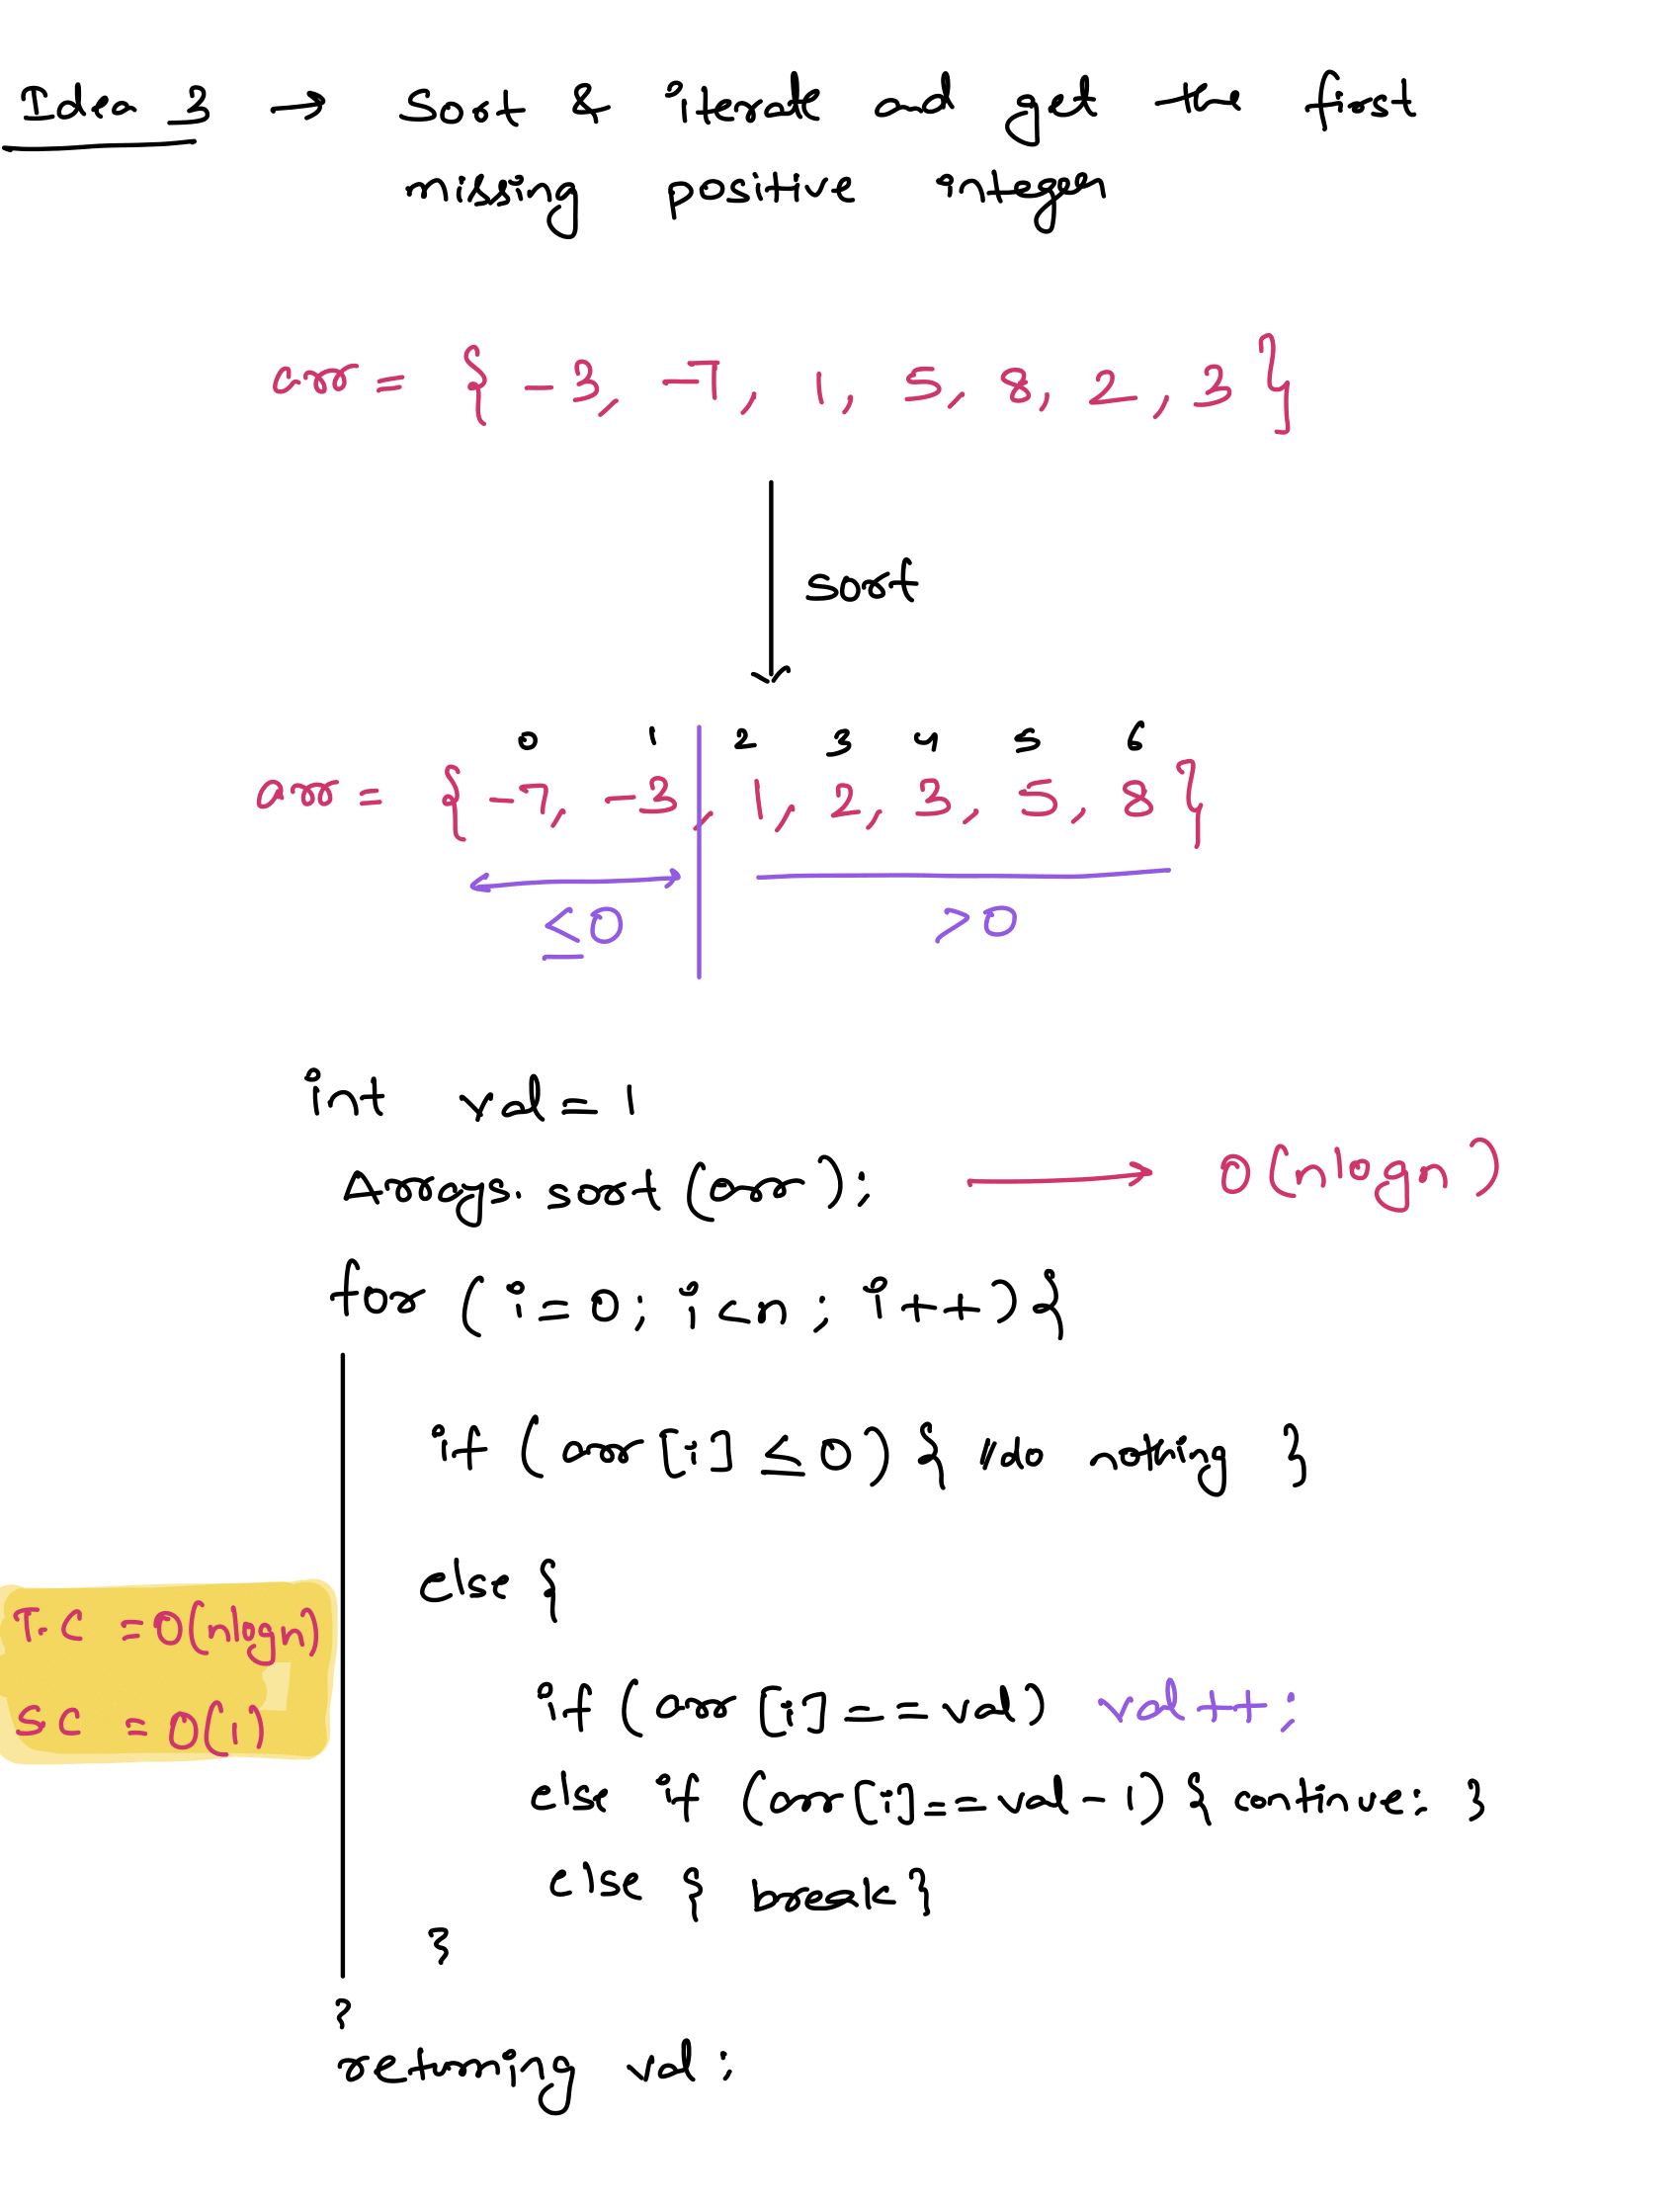 Idea 3 → Sort & iterate and get the first
missing positive integer
arr = { -3, -7, 1, 5, 8, 2, 3 }
sort
0 1 2 3 4 5 6
arr = { -7, -3, 1, 2, 3, 5, 8 }
≤0 >0
int val = 1
Arrays. sort (arr); → O(nlogn)
for ( i = 0; i < n ; i++ ) {
if ( arr [i] ≤ 0 ) { //do nothing }
else {
T.C = O(nlogn)
if ( arr [i] == val) val++;
S.C = O(1)
else if (arr [i] == val - 1) { continue; }
else { break }
}
}
returning val;